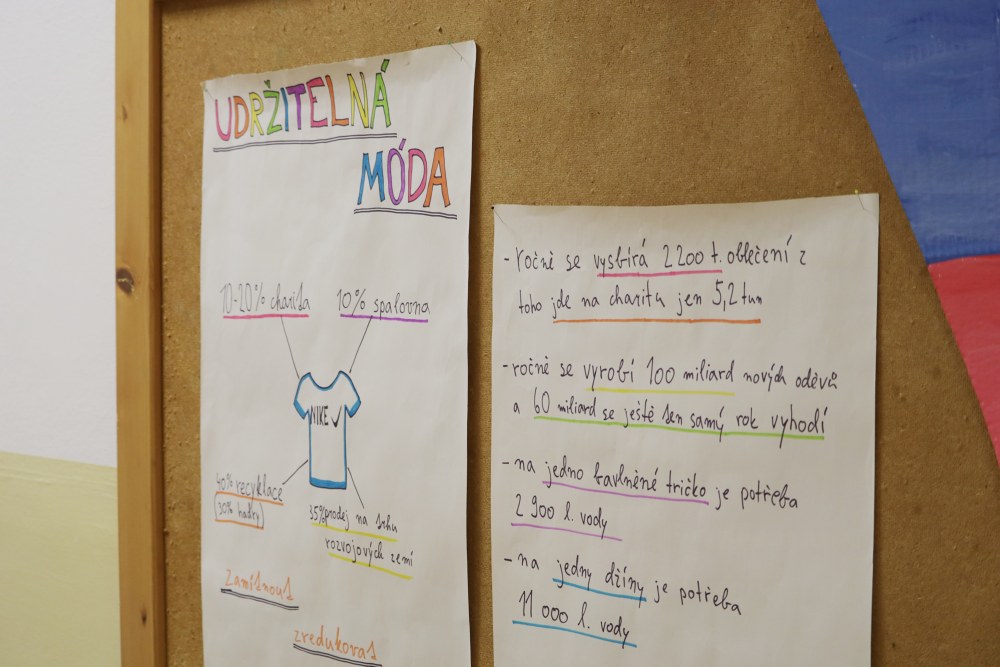 UDRŽITELNÁ
MÓDA
10-20% charita
10% spalovna
NIKE
40% recyklace
(30% hadry)
35% prodej na trhu
rozvojových zemí
zamítnout
zredukovat
- ročně se vysbírá 2200 t. oblečení z
toho jde na charitu jen 5,2 tun
- ročně se vyrobí 100 miliard nových oděvů
a 60 miliard se ještě ten samý rok vyhodí
- na jedno bavlněné tričko je potřeba
2 900 l. vody
- na jedny džíny je potřeba
11 000 l. vody